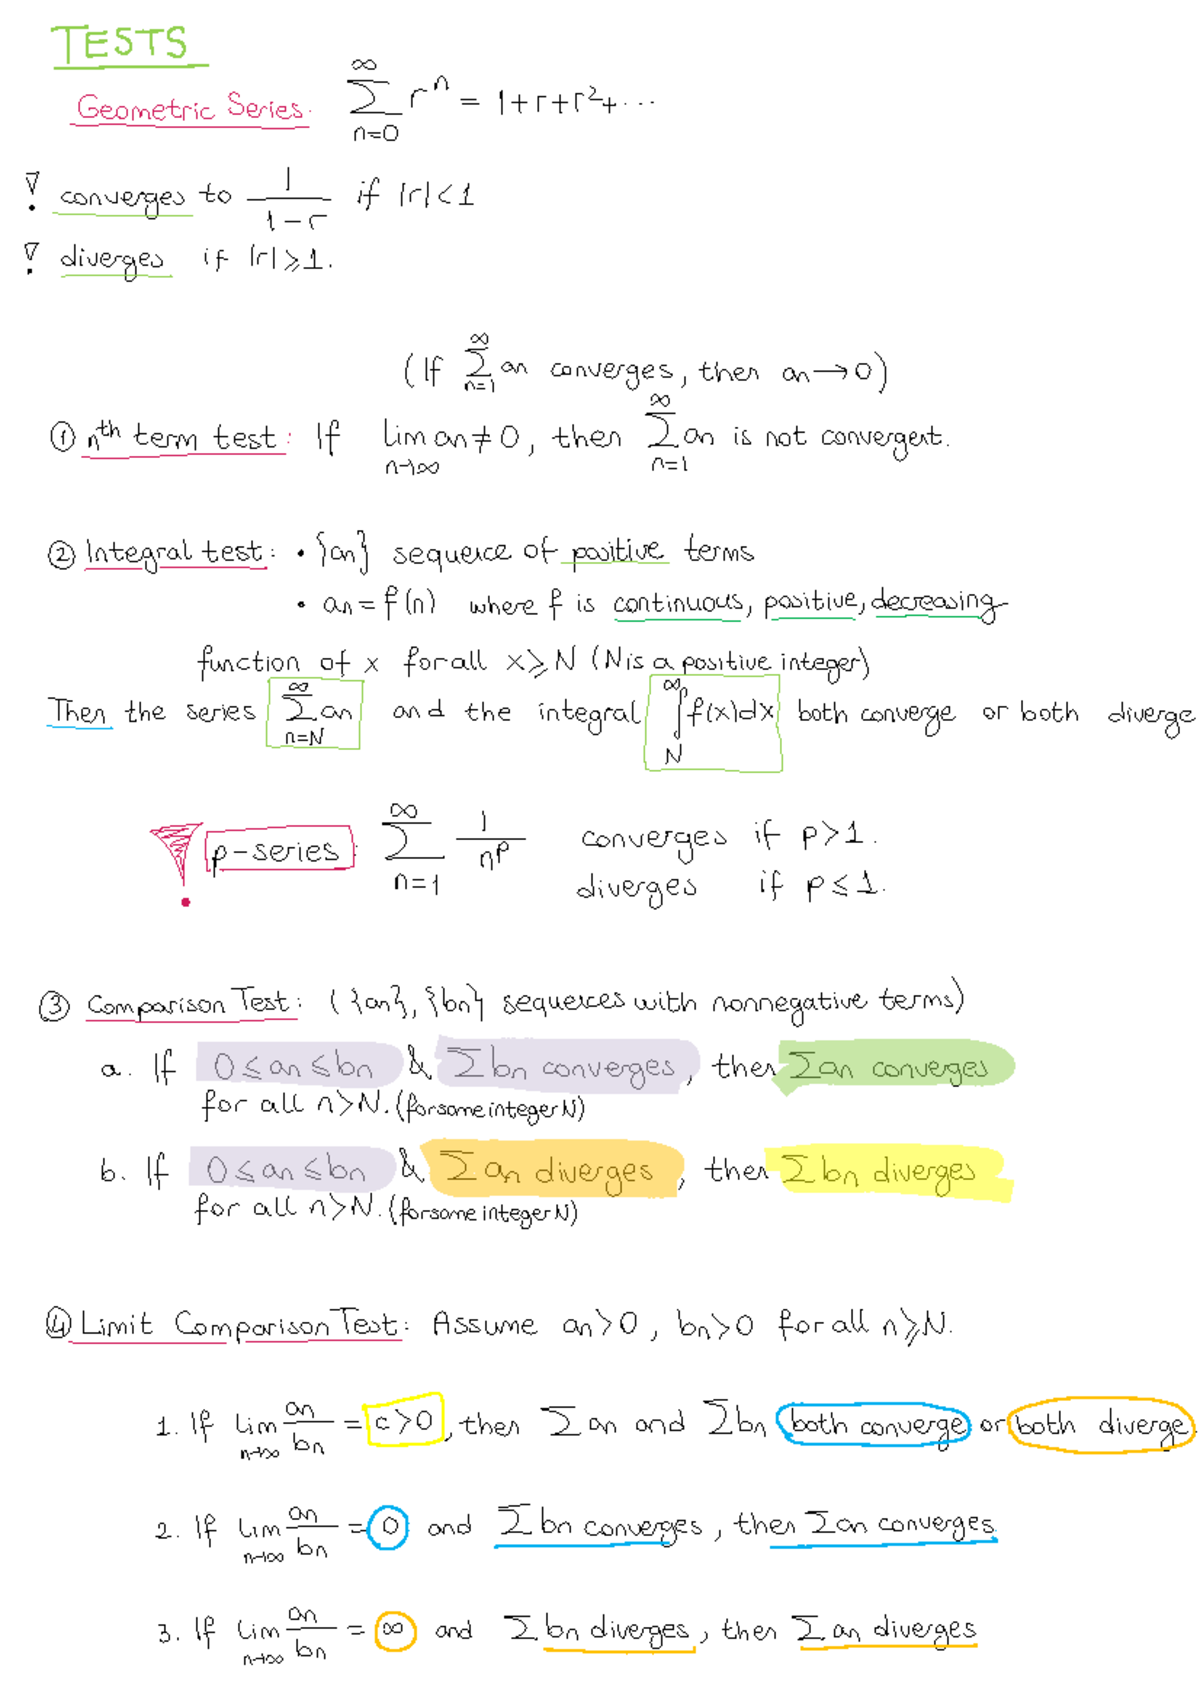 TESTS
Geometric Series. ∞∑n=0 rⁿ = 1+r+r²+...
! converges to 1/(1-r) if |r|<1
! diverges if |r|⩾1.
(If ∞∑n=1 an converges, then an→0)
① nth term test: If lim n→∞ an≠0, then ∞∑n=1 an is not convergent.
② Integral test: • {an} sequence of positive terms
• an=f(n) where f is continuous, positive, decreasing
function of x for all x⩾N (N is a positive integer)
Then the series ∞∑n=N an and the integral ∞∫N f(x)dx both converge or both diverge
! p-series ∞∑n=1 1/nᵖ converges if p>1.
diverges if p⩽1.
③ Comparison Test: ({an}, {bn} sequences with nonnegative terms)
a. If 0⩽an⩽bn & ∑bn converges, then ∑an converges
for all n>N. (for some integer N)
b. If 0⩽an⩽bn & ∑an diverges, then ∑bn diverges
for all n>N. (for some integer N)
④ Limit Comparison Test: Assume an>0, bn>0 for all n⩾N.
1. If lim n→∞ an/bn = c>0, then ∑an and ∑bn both converge or both diverge.
2. If lim n→∞ an/bn = 0 and ∑bn converges, then ∑an converges.
3. If lim n→∞ an/bn = ∞ and ∑bn diverges, then ∑an diverges